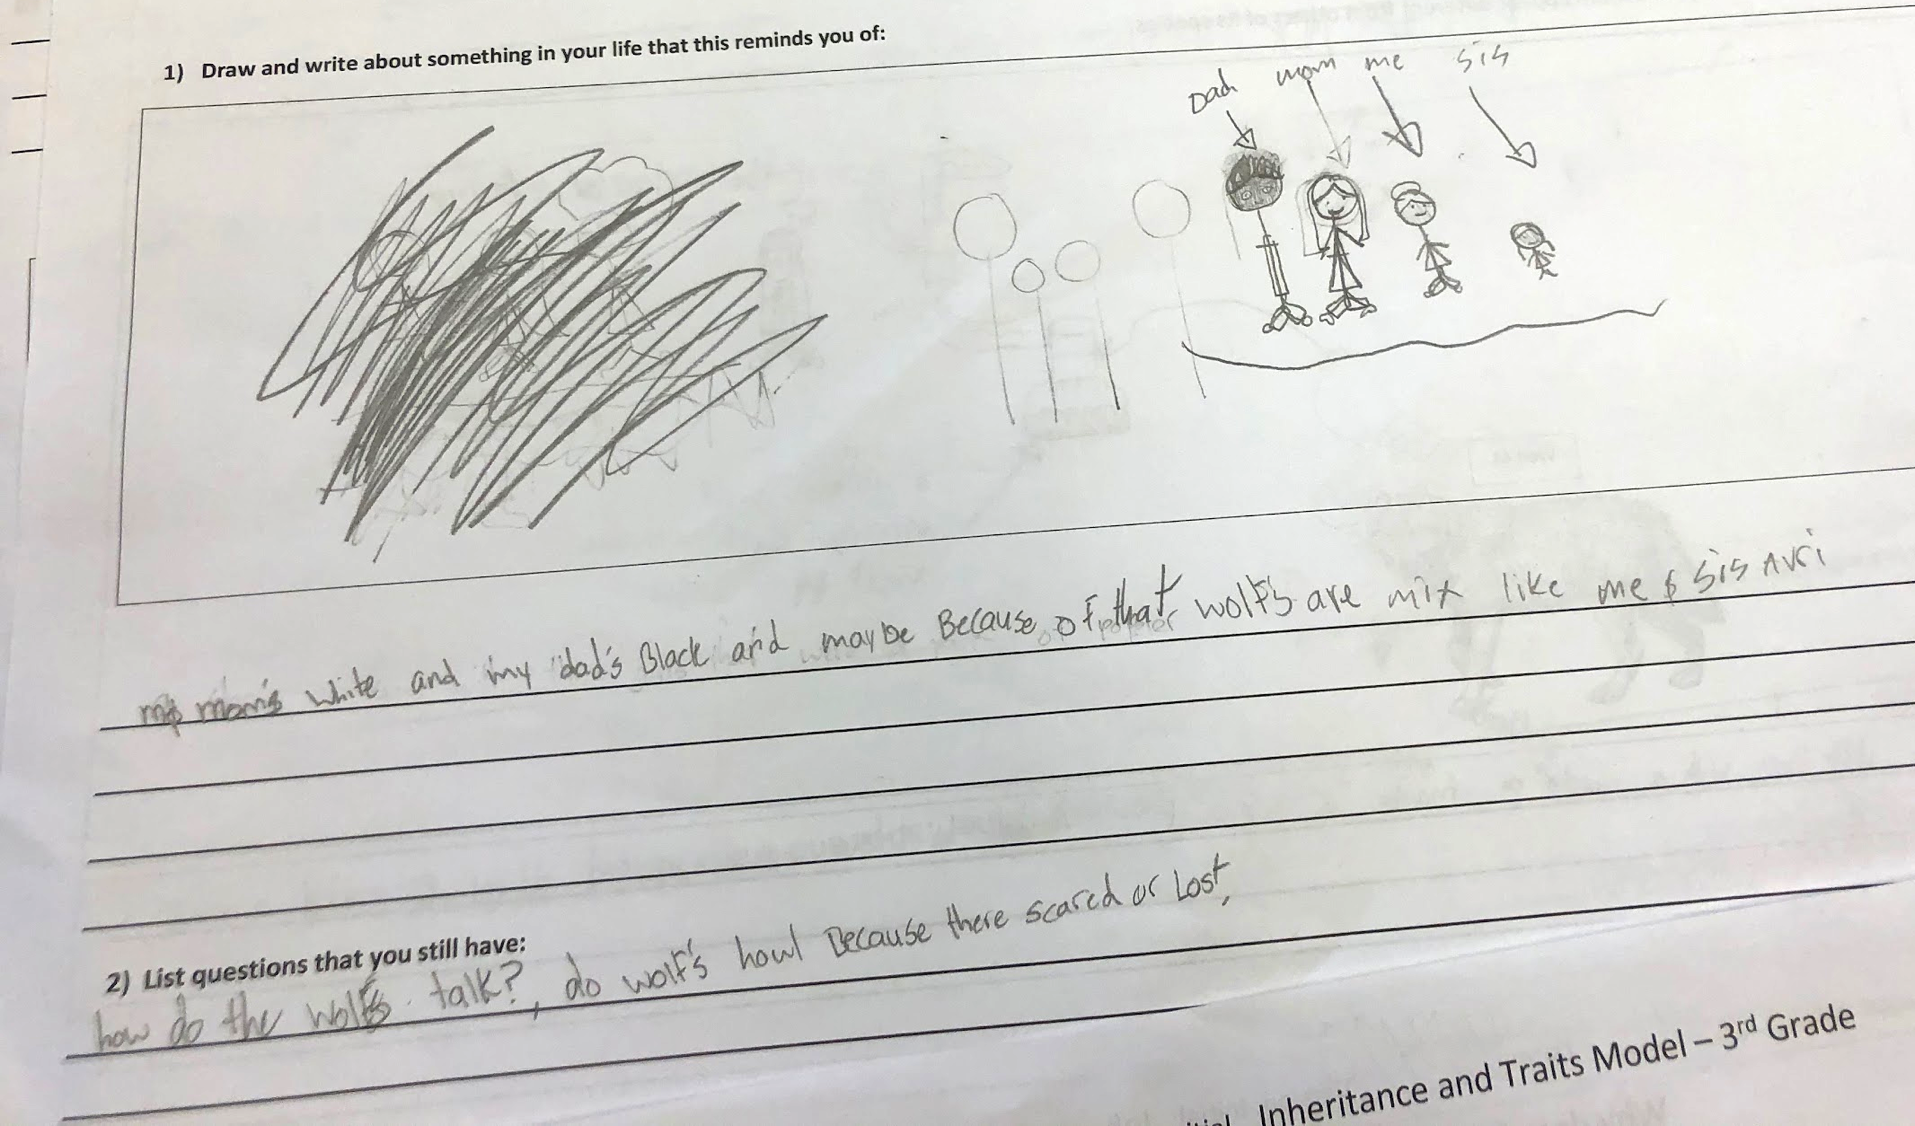 1) Draw and write about something in your life that this reminds you of:
Dad mom me sis
my mom's white and my dad's Black and maybe Because of that wolf's are mix like me & sis Avri
2) List questions that you still have:
how do the wolfs talk?, do wolf's howl Because there scared or Lost,
Inheritance and Traits Model – 3rd Grade